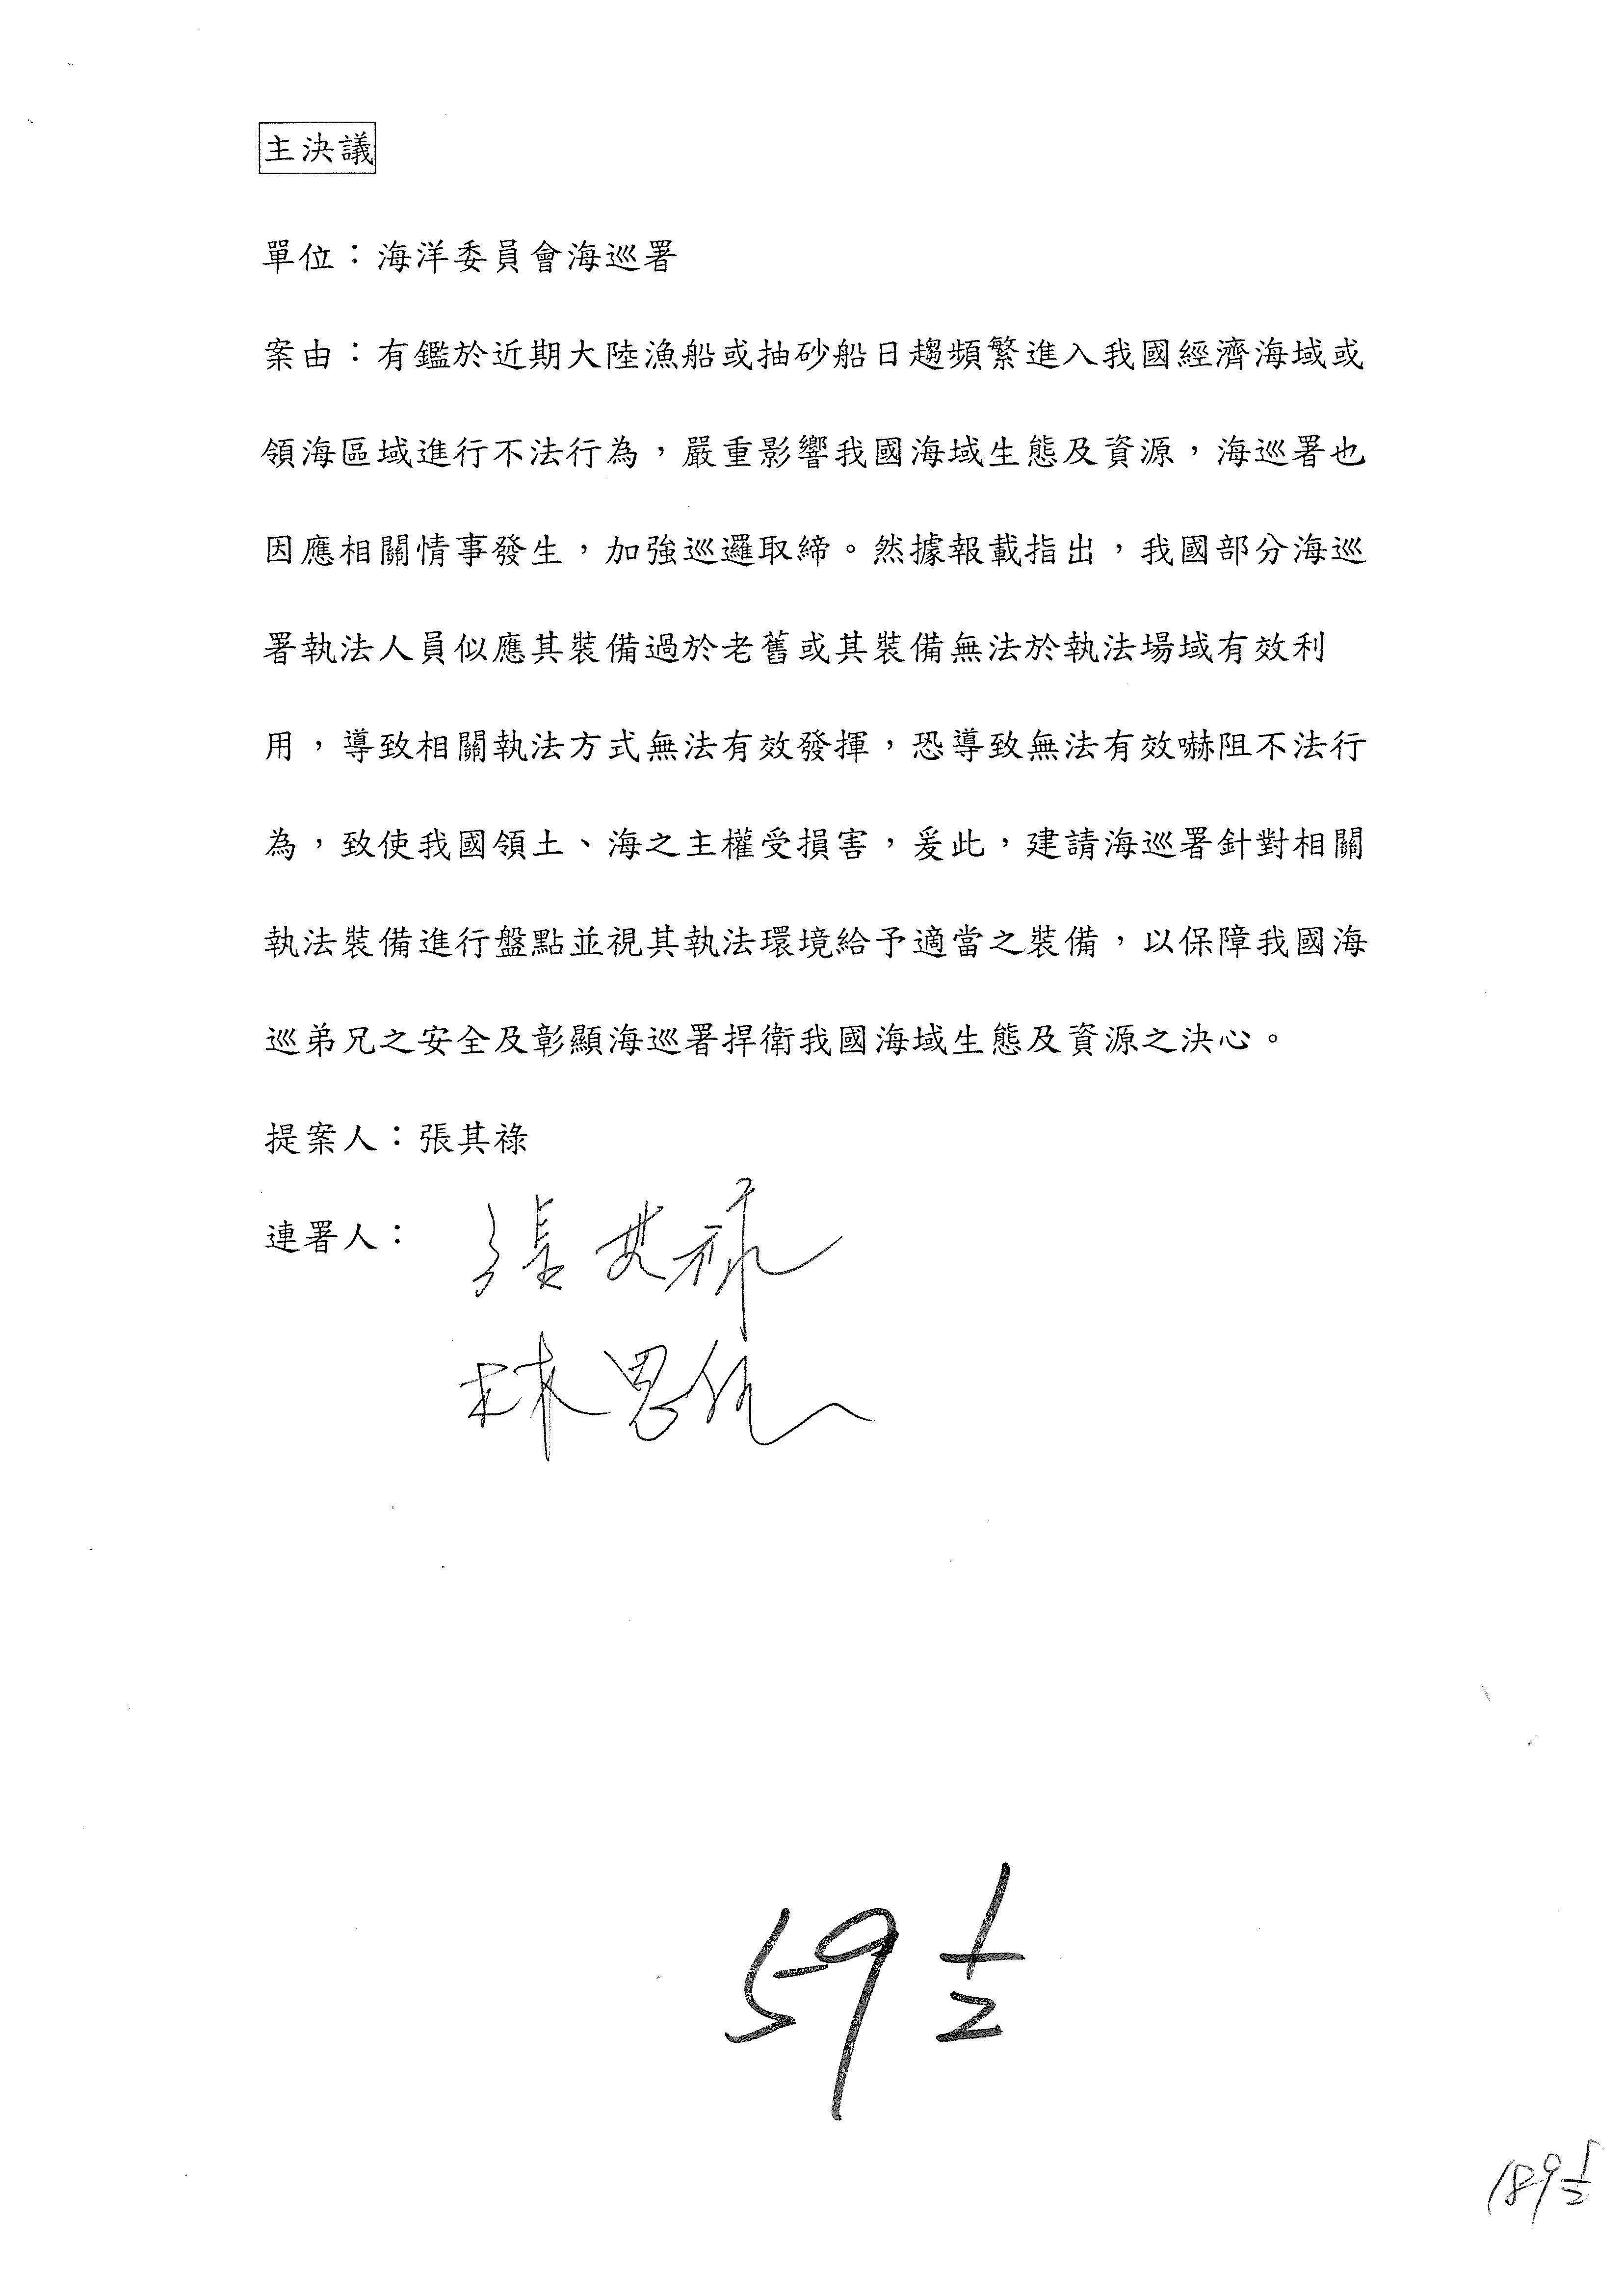 主決議
單位：海洋委員會海巡署
案由：有鑑於近期大陸漁船或抽砂船日趨頻繁進入我國經濟海域或
領海區域進行不法行為，嚴重影響我國海域生態及資源，海巡署也
因應相關情事發生，加強巡邏取締。然據報載指出，我國部分海巡
署執法人員似應其裝備過於老舊或其裝備無法於執法場域有效利
用，導致相關執法方式無法有效發揮，恐導致無法有效嚇阻不法行
為，致使我國領土、海之主權受損害，爰此，建請海巡署針對相關
執法裝備進行盤點並視其執法環境給予適當之裝備，以保障我國海
巡弟兄之安全及彰顯海巡署捍衛我國海域生態及資源之決心。
提案人：張其祿
連署人：
張其祿
林思銘
59 1/2
189 1/2